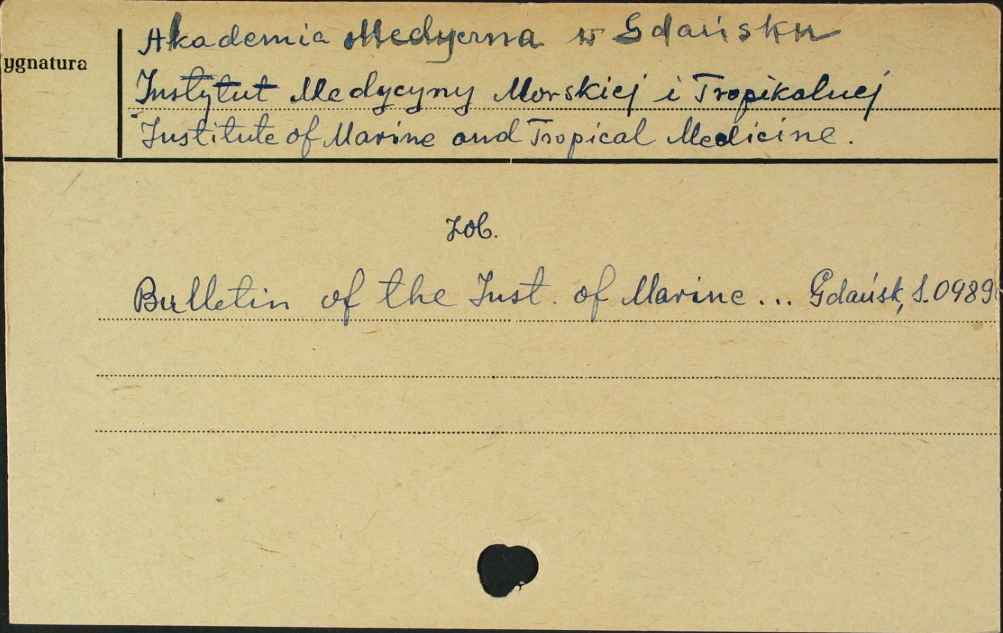 Akademia Medyczna w Gdańsku
ygnatura
Instytut Medycyny Morskiej i Tropikalnej
Institute of Marine and Tropical Medicine.
zob.
Bulletin of the Inst. of Marine ... Gdańsk, S.0989